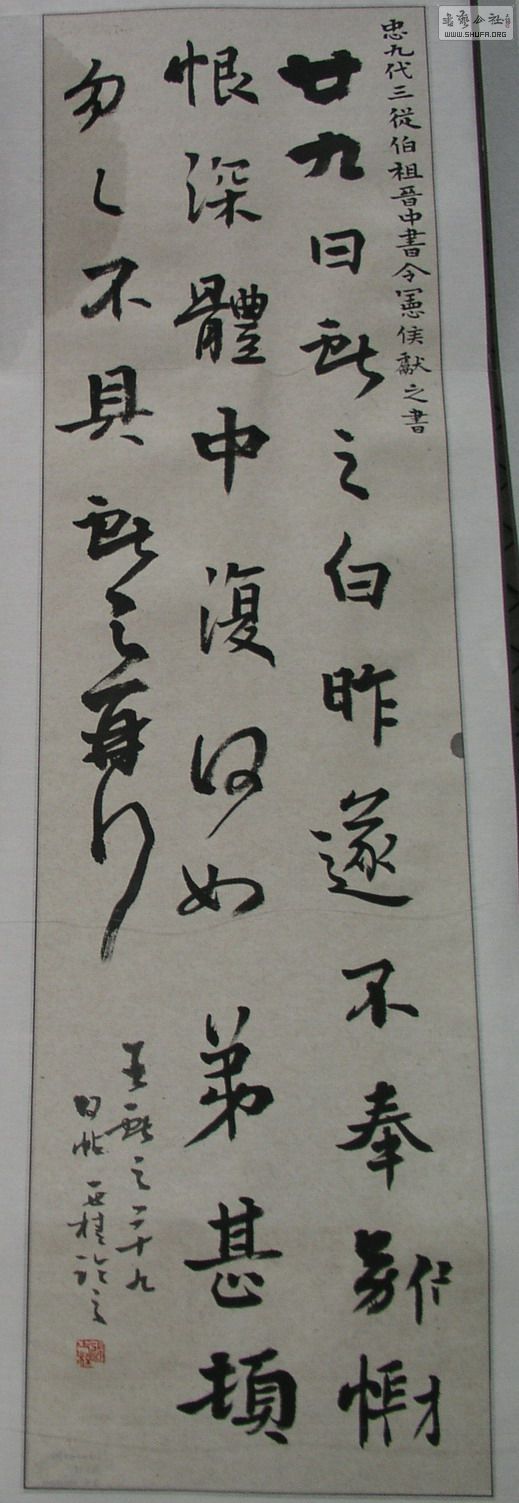 書藝公社
WWW.SHUFA.ORG
忠九代三從伯祖晉中書令憲侯獻之書
廿九日獻之白昨遂不奉別悵
恨深體中復何如弟甚頓
匆匆不具獻之再拜
王獻之二十九
日帖